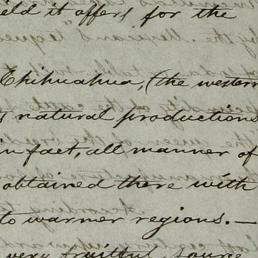 ield it offers for the
Chihuahua, (the western
natural productions
in fact, all manner of
obtained there with
to warmer regions. —
very fruitful source